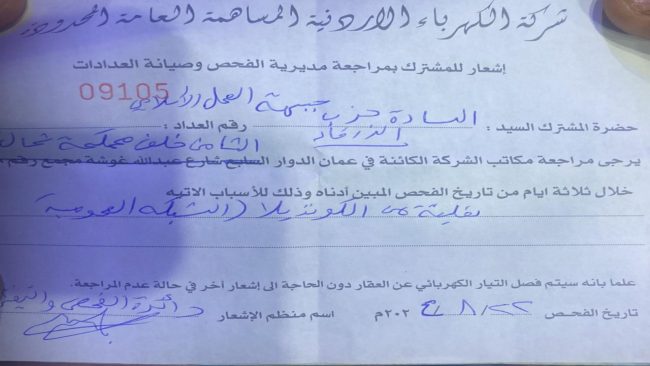 شركة الكهرباء الاردنية المساهمة العامة المحدودة
إشعار للمشترك بمراجعة مديرية الفحص وصيانة العدادات
09105
حضرة المشترك السيد : السادة حزب جبهة العمل الاسلامي رقم العداد :
الزرقاء
الثامن خلف محكمة شمال
يرجى مراجعة مكاتب الشركة الكائنة في عمان الدوار السابع شارع عبدالله غوشة مجمع رقم
خلال ثلاثة ايام من تاريخ الفحص المبين أدناه وذلك للأسباب الاتيه
من (الشبكه العمومية
علما بانه سيتم فصل التيار الكهربائي عن العقار دون الحاجة الى إشعار أخر في حالة عدم المراجعة.
تاريخ الفحص ٢٢/٨/٢٠٢٤م اسم منظم الإشعار دائرة الفحص